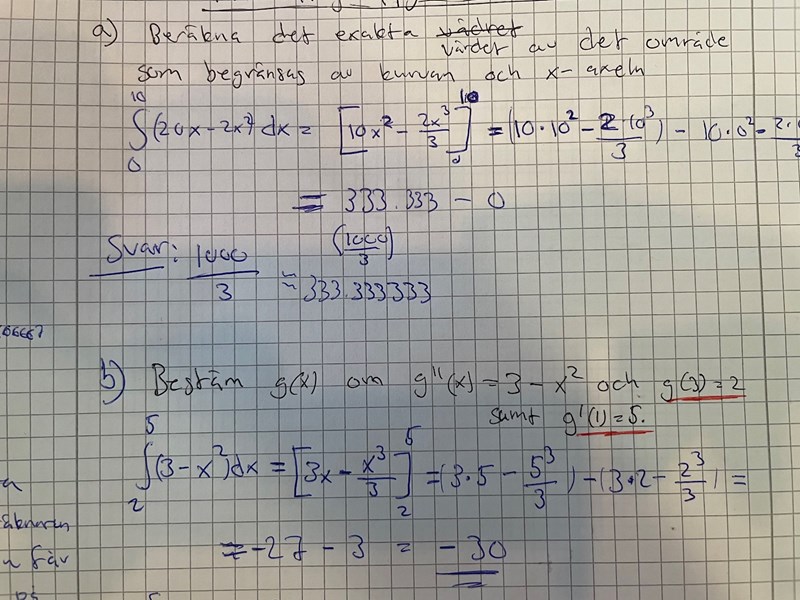 a) Beräkna det exakta
värdet av det område
som begränsas av kurvan och x-axeln
10
∫(20x-2x²)dx = [10x² - 2x³/3]10 0 = (10·10² - 2·10³/3) - 10·0² - 2·
0
= 333.333 - 0
(1000/3)
Svar: 1000/3 ≈ 333.333333
06667
b) Bestäm g(x) om g''(x) = 3 - x² och g(3) = 2
samt g'(1) = 5.
5
∫(3-x²)dx = [3x - x³/3]5 2 = (3·5 - 5³/3) - (3·2 - 2³/3) =
2
= -27 - 3 = -30